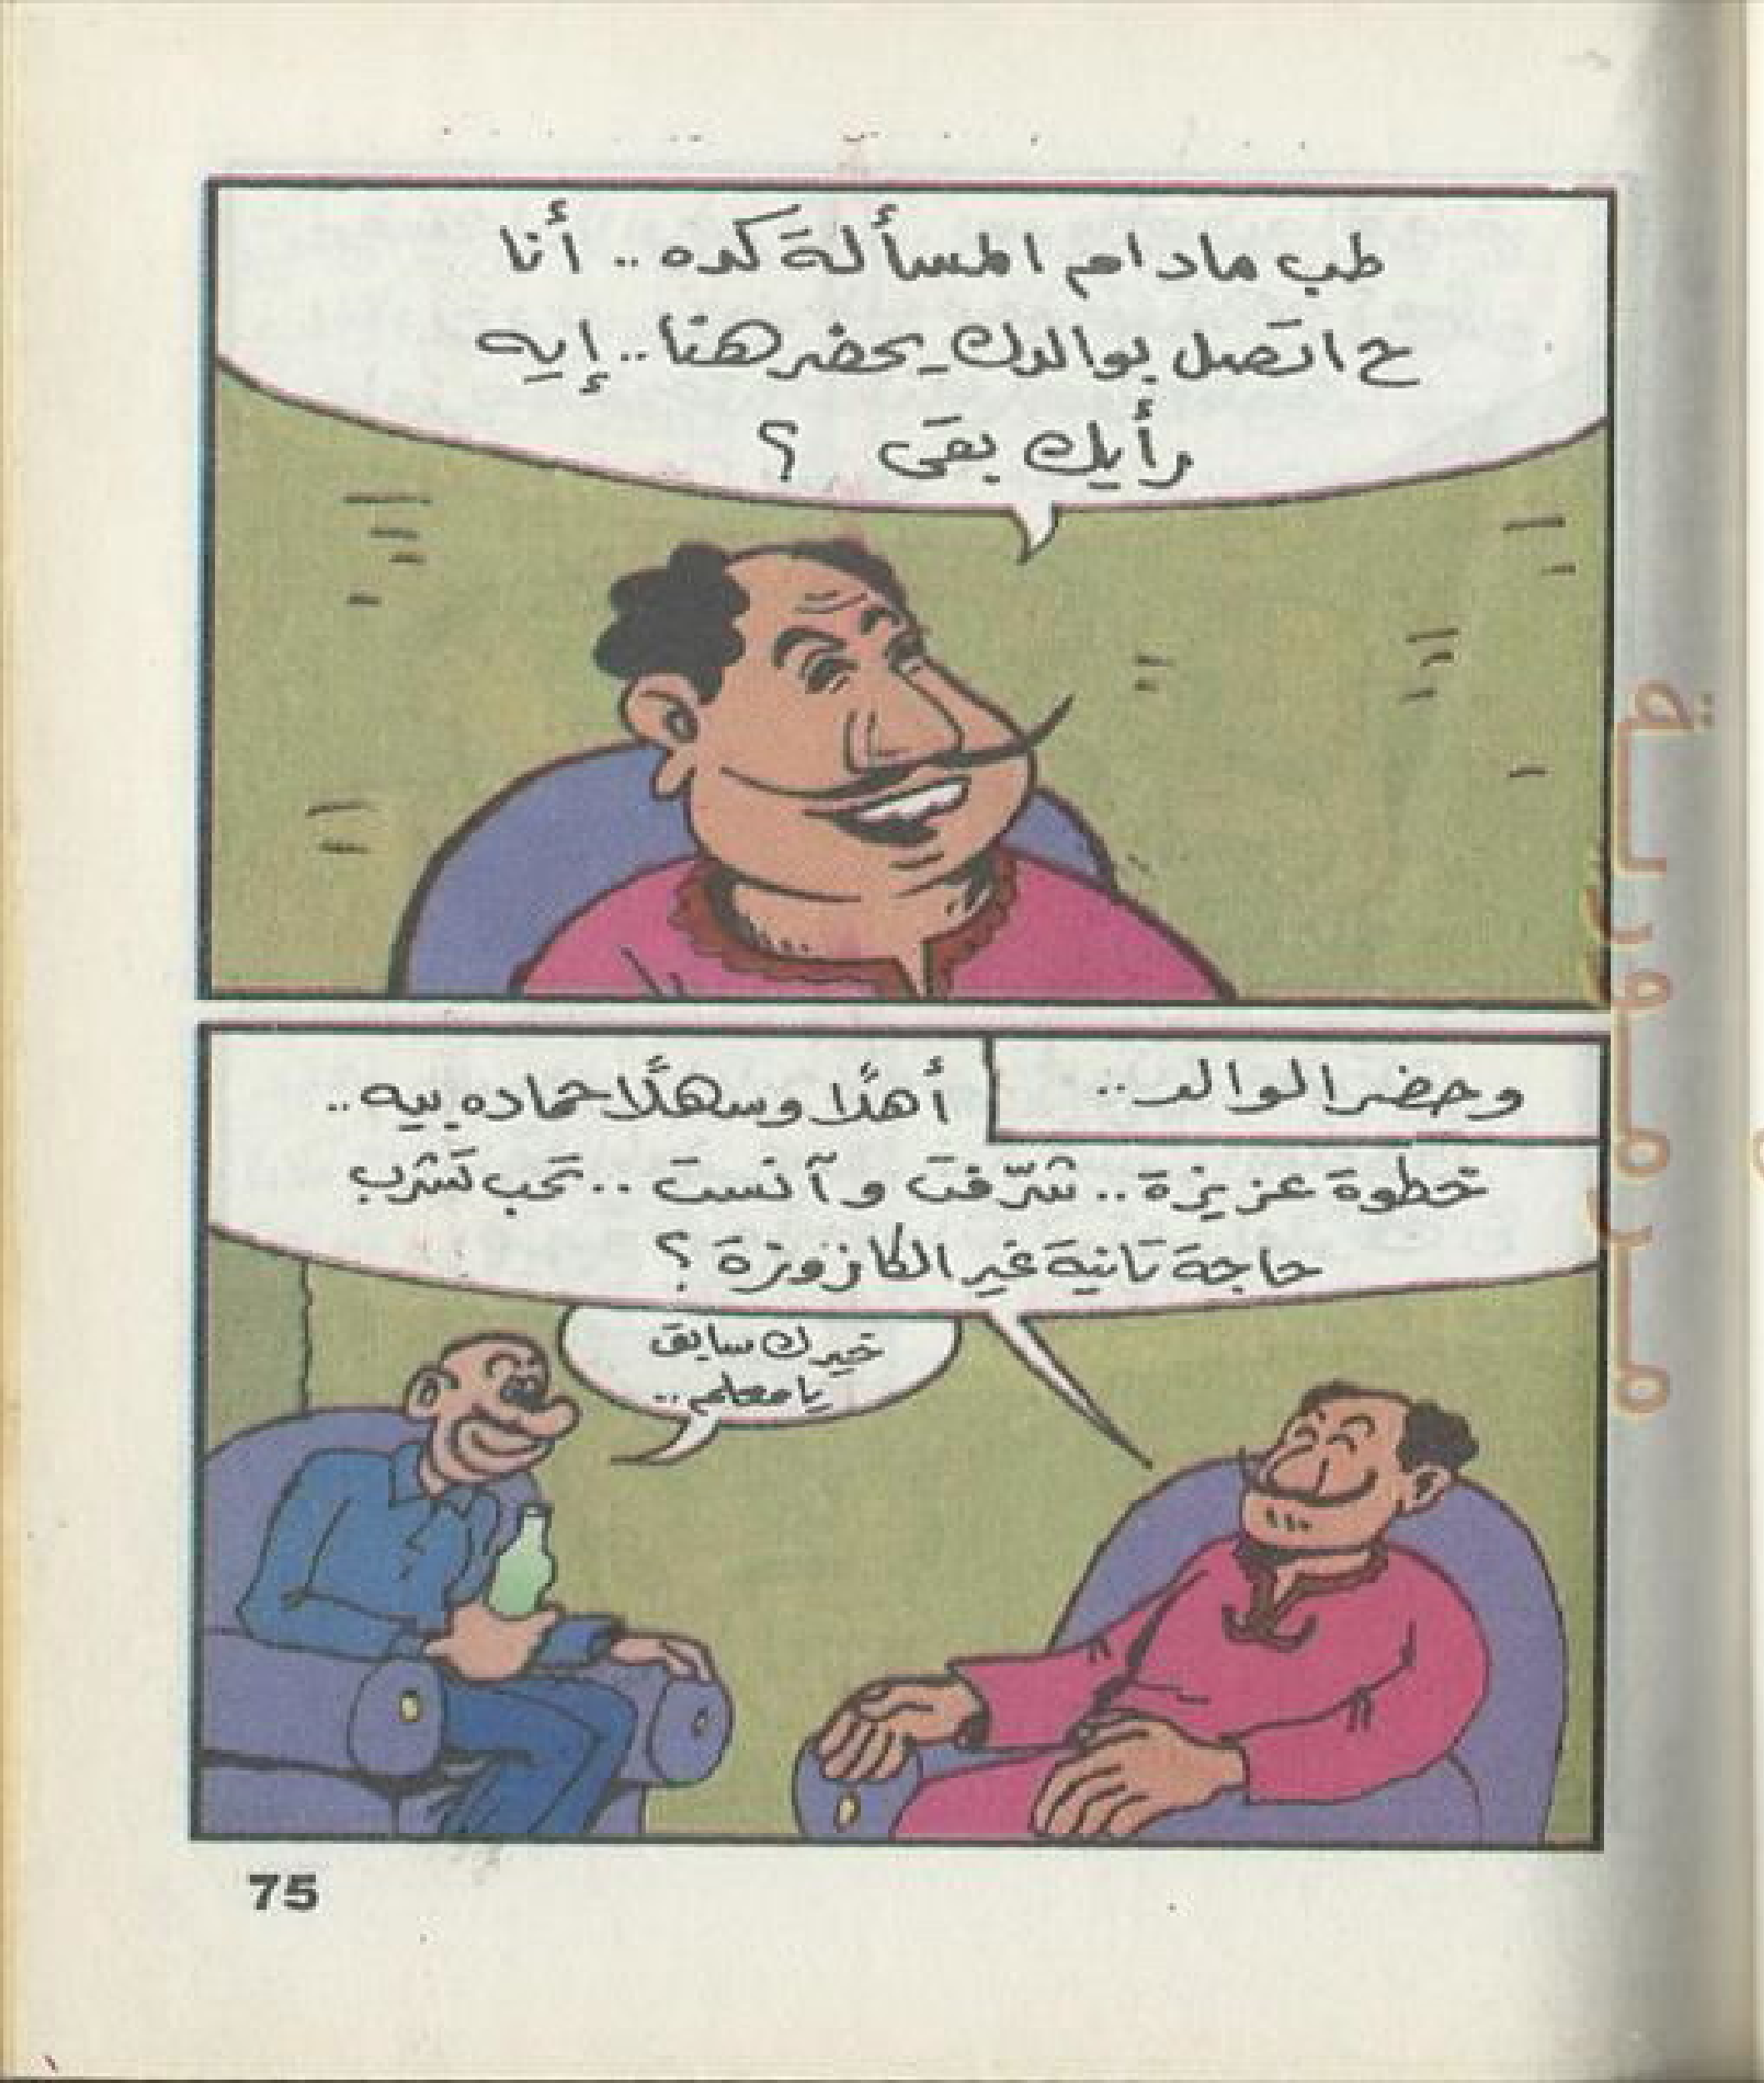 طب مادام المسألة كده .. أنا
ح اتصل بوالدك يحضر هنا .. إيه
رأيك بقى ؟
وحضر الوالد ..
أهلًا وسهلًا حماده بيه ..
خطوة عزيزة .. شرّفت وآنست .. تحب تشرب
حاجة تانية غير الكازوزة ؟
خيرك سابق
يا معلم ..
75